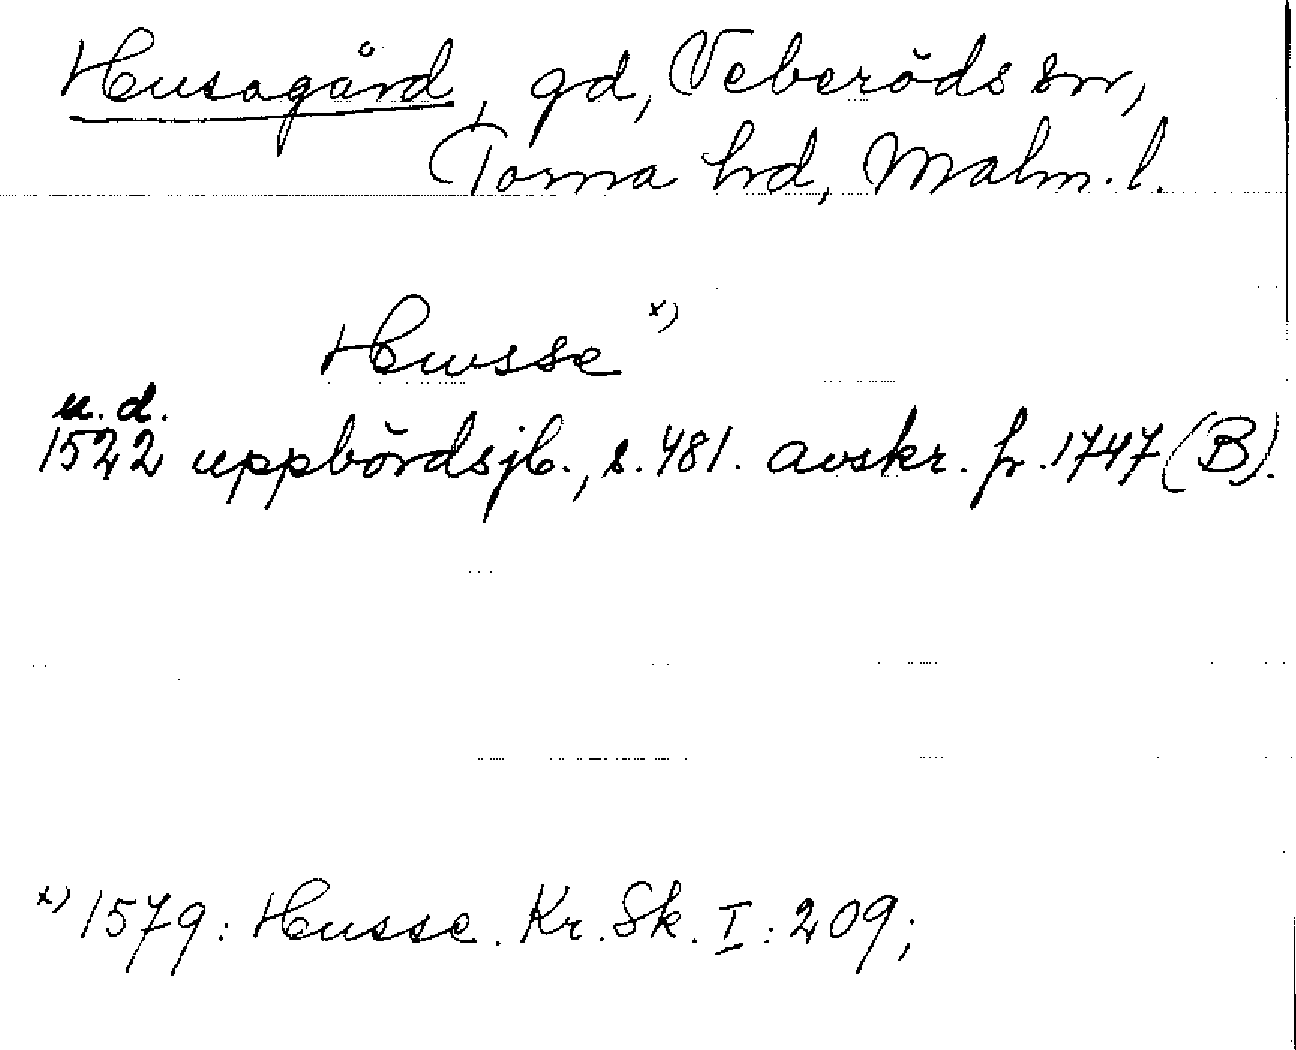 Husagård, gd, Veberöds sn,
Torna hrd, Malm. l.
Hwsse x)
u. d.
1522 uppbördsjb., s. 481. avskr. fr. 1747 (B).
x) 1579: Husse. Kr. Sk. I: 209;